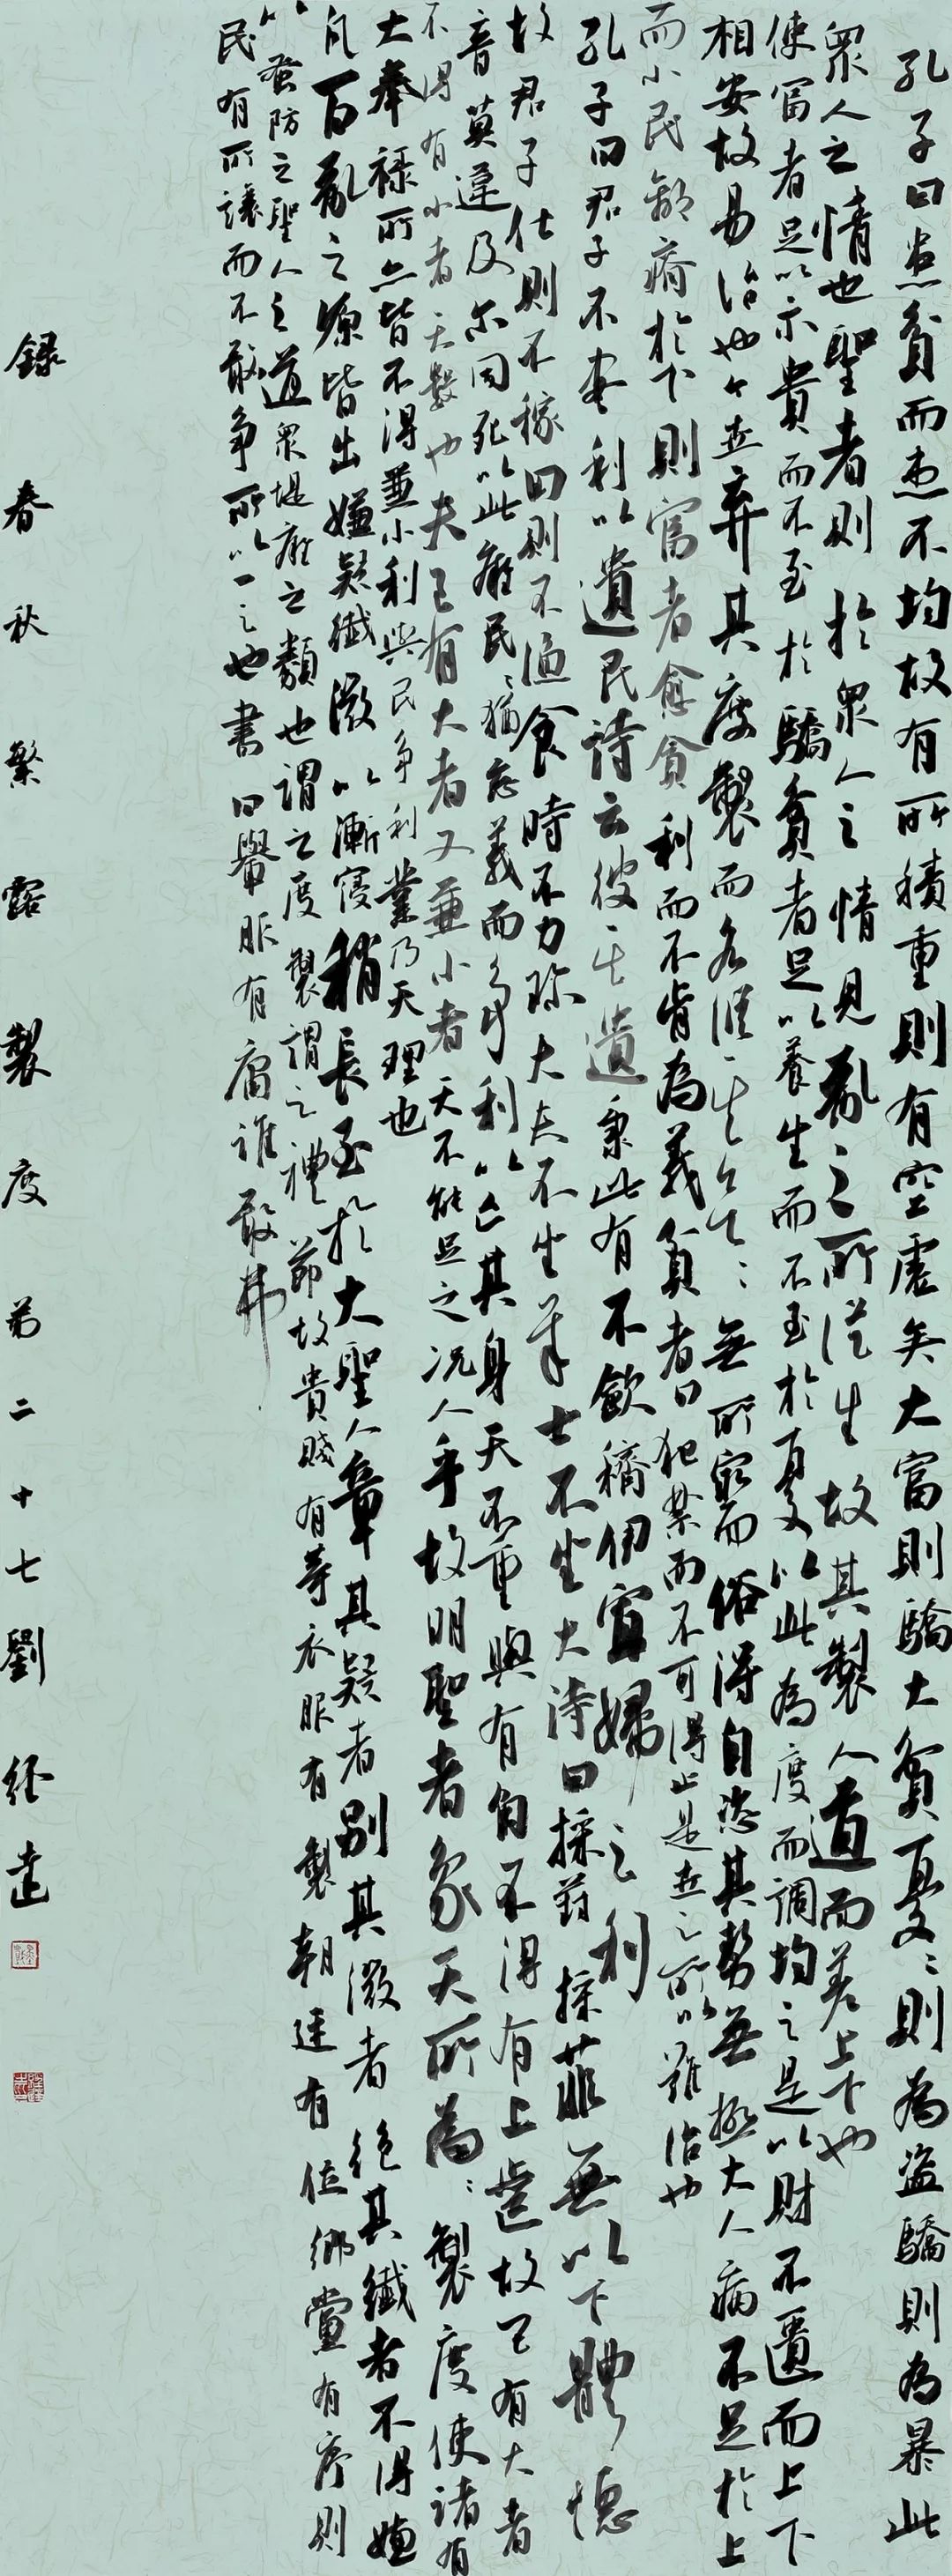 孔子曰患貧而患不均故有所積重則有空虛矣大富則驕大貧憂〻則為盜驕則為暴此
眾人之情也聖者則於眾人之情見亂之所從生故其製人道而差上下也
使富者足以示貴而不至於驕貧者足以養生而不至於憂以此為度而調均之是以財不匱而上下
相安故易治也今世棄其度製而各從其欲〻無所窮而俗得自恣其勢無極大人病不足於上
而小民羸瘠於下則富者愈貪利而不肯為義貧者日犯禁而不可得止是世之所以難治也
孔子曰君子不盡利以遺民詩云彼其遺秉此有不斂穧伊寡婦之利
故君子仕則不稼田則不漁食時不力珍大夫不坐羊士不坐犬詩曰採葑採菲無以下體德
音莫違及爾同死以此防民〻猶忘義而爭利以亡其身天不重與有角不得有上齒故已有大者
不得有小者天數也夫已有大者又兼小者天不能足之況人乎故明聖者象天所為〻製度使諸有
大奉祿所亦皆不得兼小利與民爭利業乃天理也
凡百亂之源皆出嫌疑纖微以漸寖稍長至於大聖人章其疑者別其微者絕其纖者不得嫌
以蚤防之聖人之道眾堤防之類也謂之度製謂之禮節故貴賤有等衣服有製朝廷有位鄉黨有序則
民有所讓而不敢爭所以一之也書曰轝服有庸誰敢弗
錄春秋繁露製度弟二十七劉經達